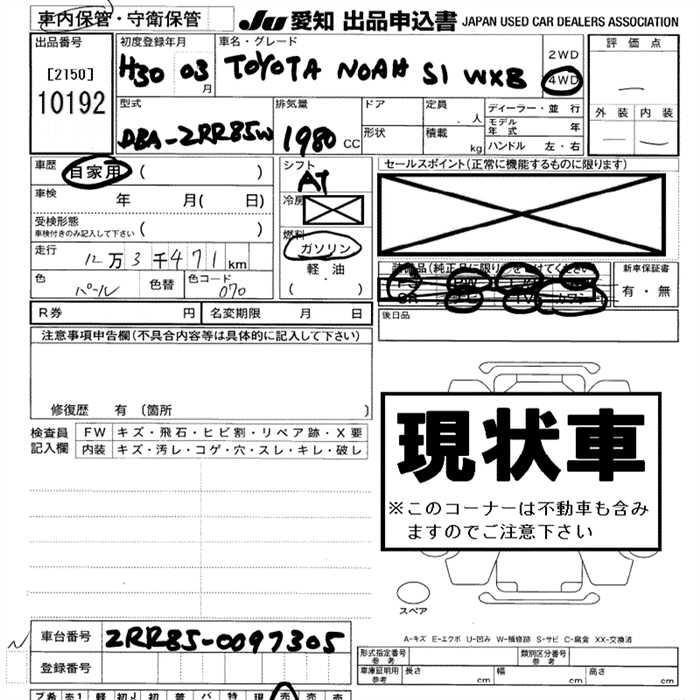 車内保管・守衛保管
JU 愛知 出品申込書 JAPAN USED CAR DEALERS ASSOCIATION
出品番号
[2150]
10192
初度登録年月
H30 03月
車名・グレード
TOYOTA NOAH SI WXB
2WD
4WD
評価点
外装 内装
型式
DBA-ZRR85W
排気量
1980 CC
ドア
形状
定員 . 人
積載 kg
ディーラー・並行
モデル年式 年
ハンドル 左・右
車歴 自家用 ( )
車検 年 月( 日)
受検形態
車検付きのみ記入して下さい ( )
走行 12万3千471km
色 パール 色替 色コード 070
シフト
AT
冷房
燃料
ガソリン
軽油
( . )
セールスポイント(正常に機能するものに限ります)
新車保証書
有・無
後日品
R券 円 名変期限 月 日
注意事項申告欄(不具合内容等は具体的に記入して下さい)
修復歴 有 (箇所 )
検査員記入欄
FW キズ・飛石・ヒビ割・リペア跡・X要
内装 キズ・汚レ・コゲ・穴・スレ・キレ・破レ
現状車
※このコーナーは不動車も含み
ますのでご注意下さい
スペア
A-キズ E-エクボ U-凹み W-補修跡 S-サビ C-腐食 XX-交換済
車台番号 ZRR85-0097305
登録番号
形式指定番号 参考
類別区分番号 参考
車庫証明用 参考 長さ cm 幅 cm 高さ cm